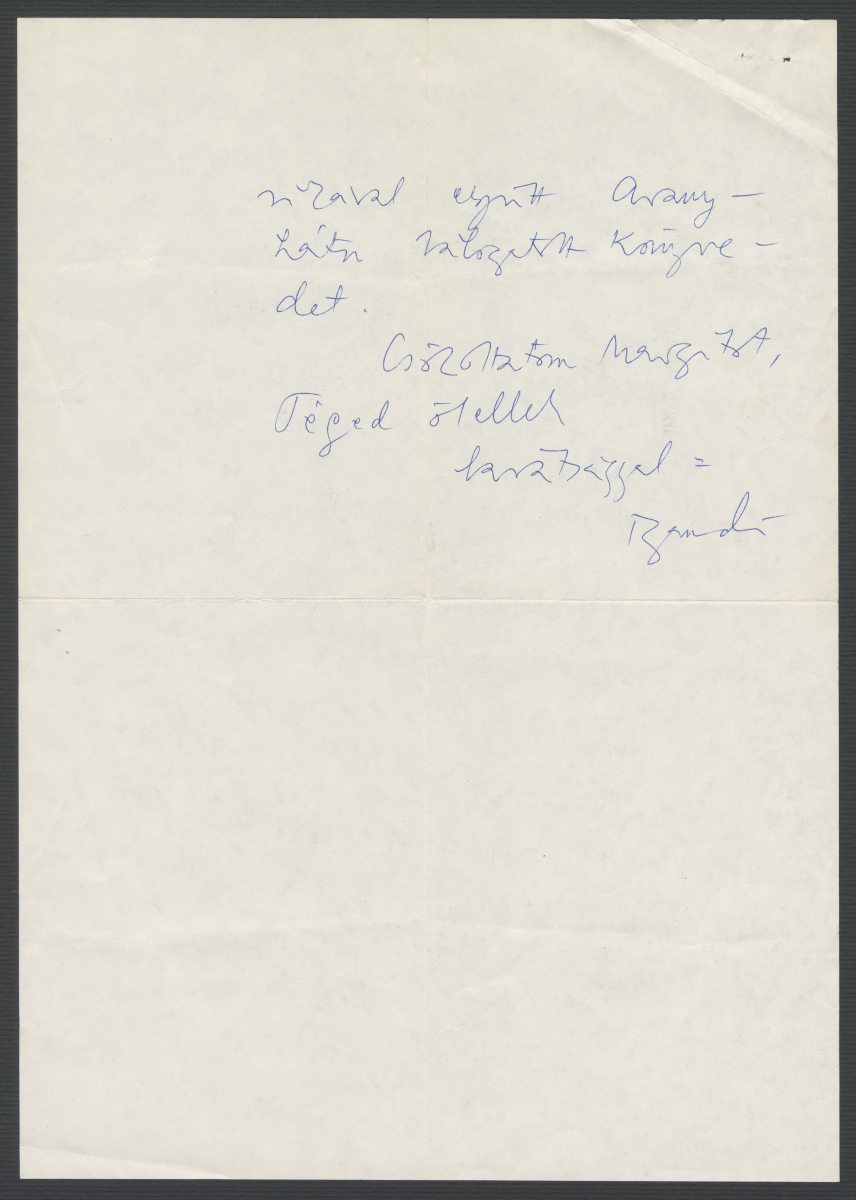 együtt Arany-
válogatott könyve-
det.
Csókoltatom Margitot,
Téged ölellek
barátsággal =
Bandi